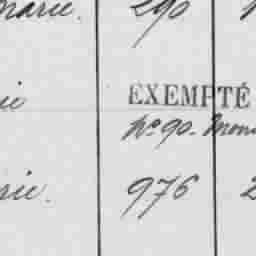 marie. 290
ie EXEMPTÉ
No 90. Mom
rie. 976 2